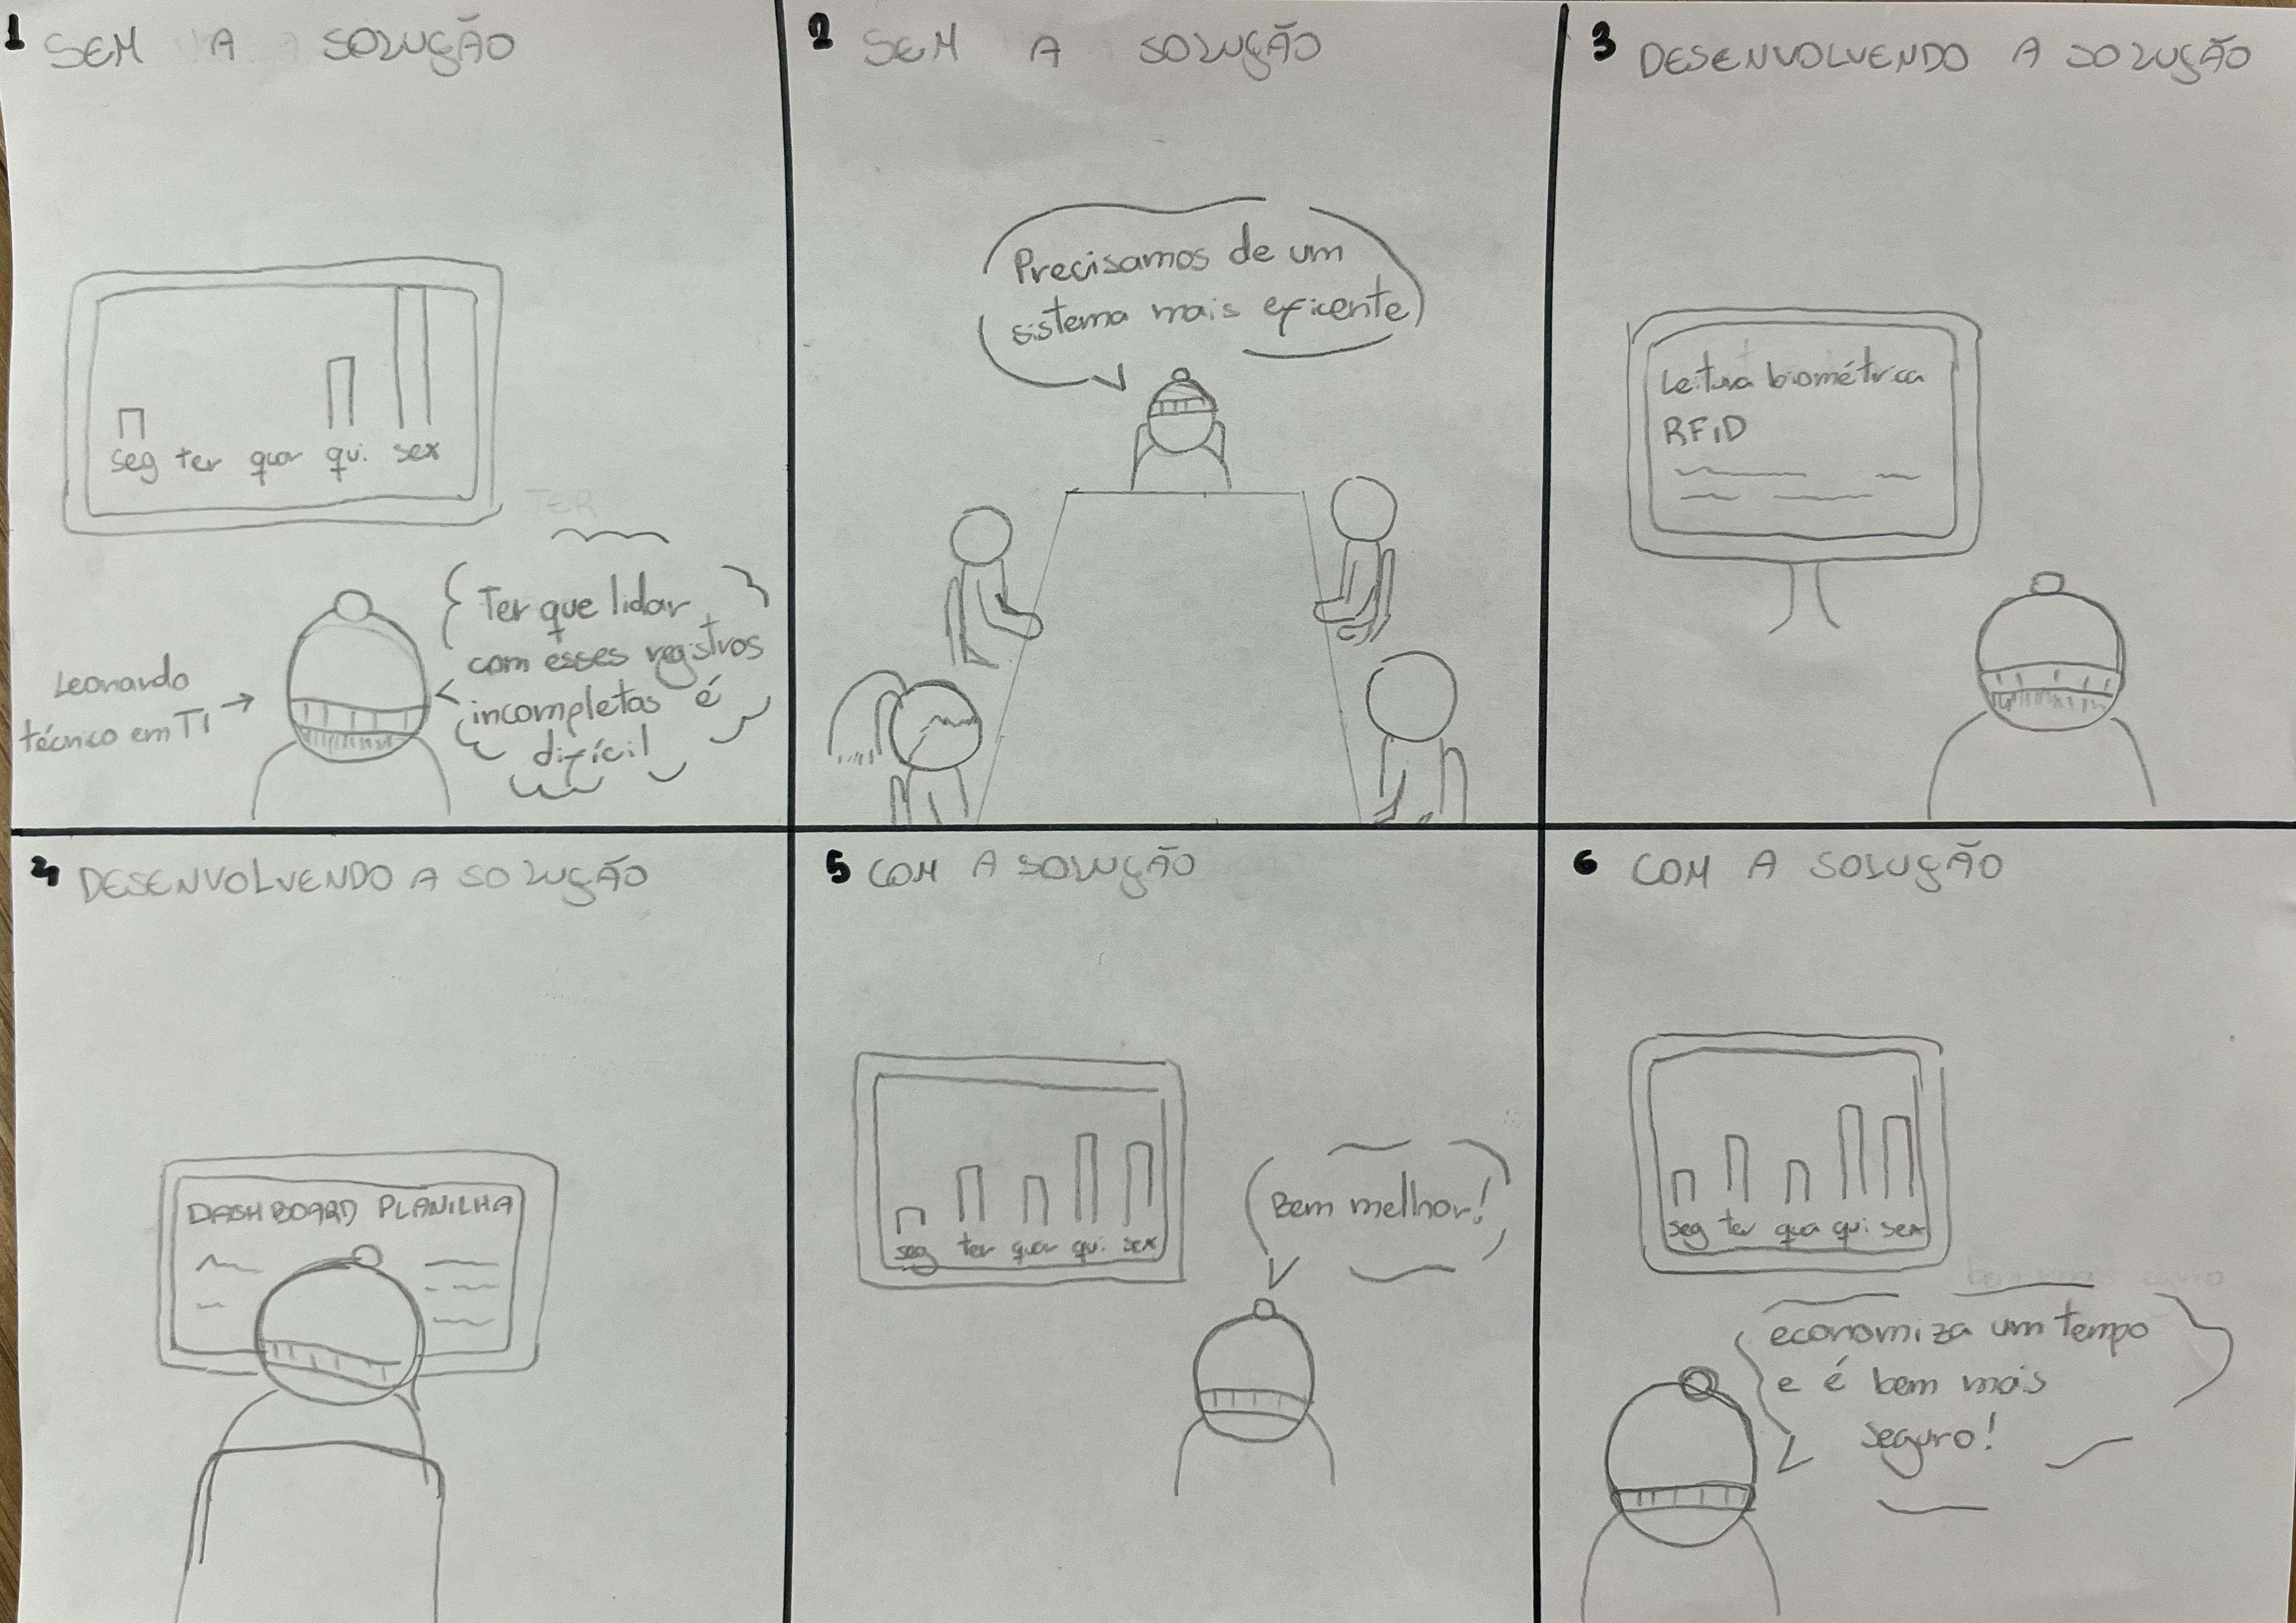 1 SEM A SOLUÇÃO
seg ter quar qui. sex
TER
Ter que lidar
com esses registros
incompletas é
difícil
Leonardo
técnico em TI
2 SEM A SOLUÇÃO
Precisamos de um
sistema mais eficente
3 DESENVOLVENDO A SOLUÇÃO
Leitura biométrica
RFiD
4 DESENVOLVENDO A SOLUÇÃO
DASHBOARD PLANILHA
5 COM A SOLUÇÃO
seg ter quar qui. sex
Bem melhor!
6 COM A SOLUÇÃO
seg ter qua qui sex
economiza um tempo
e é bem mais
seguro!